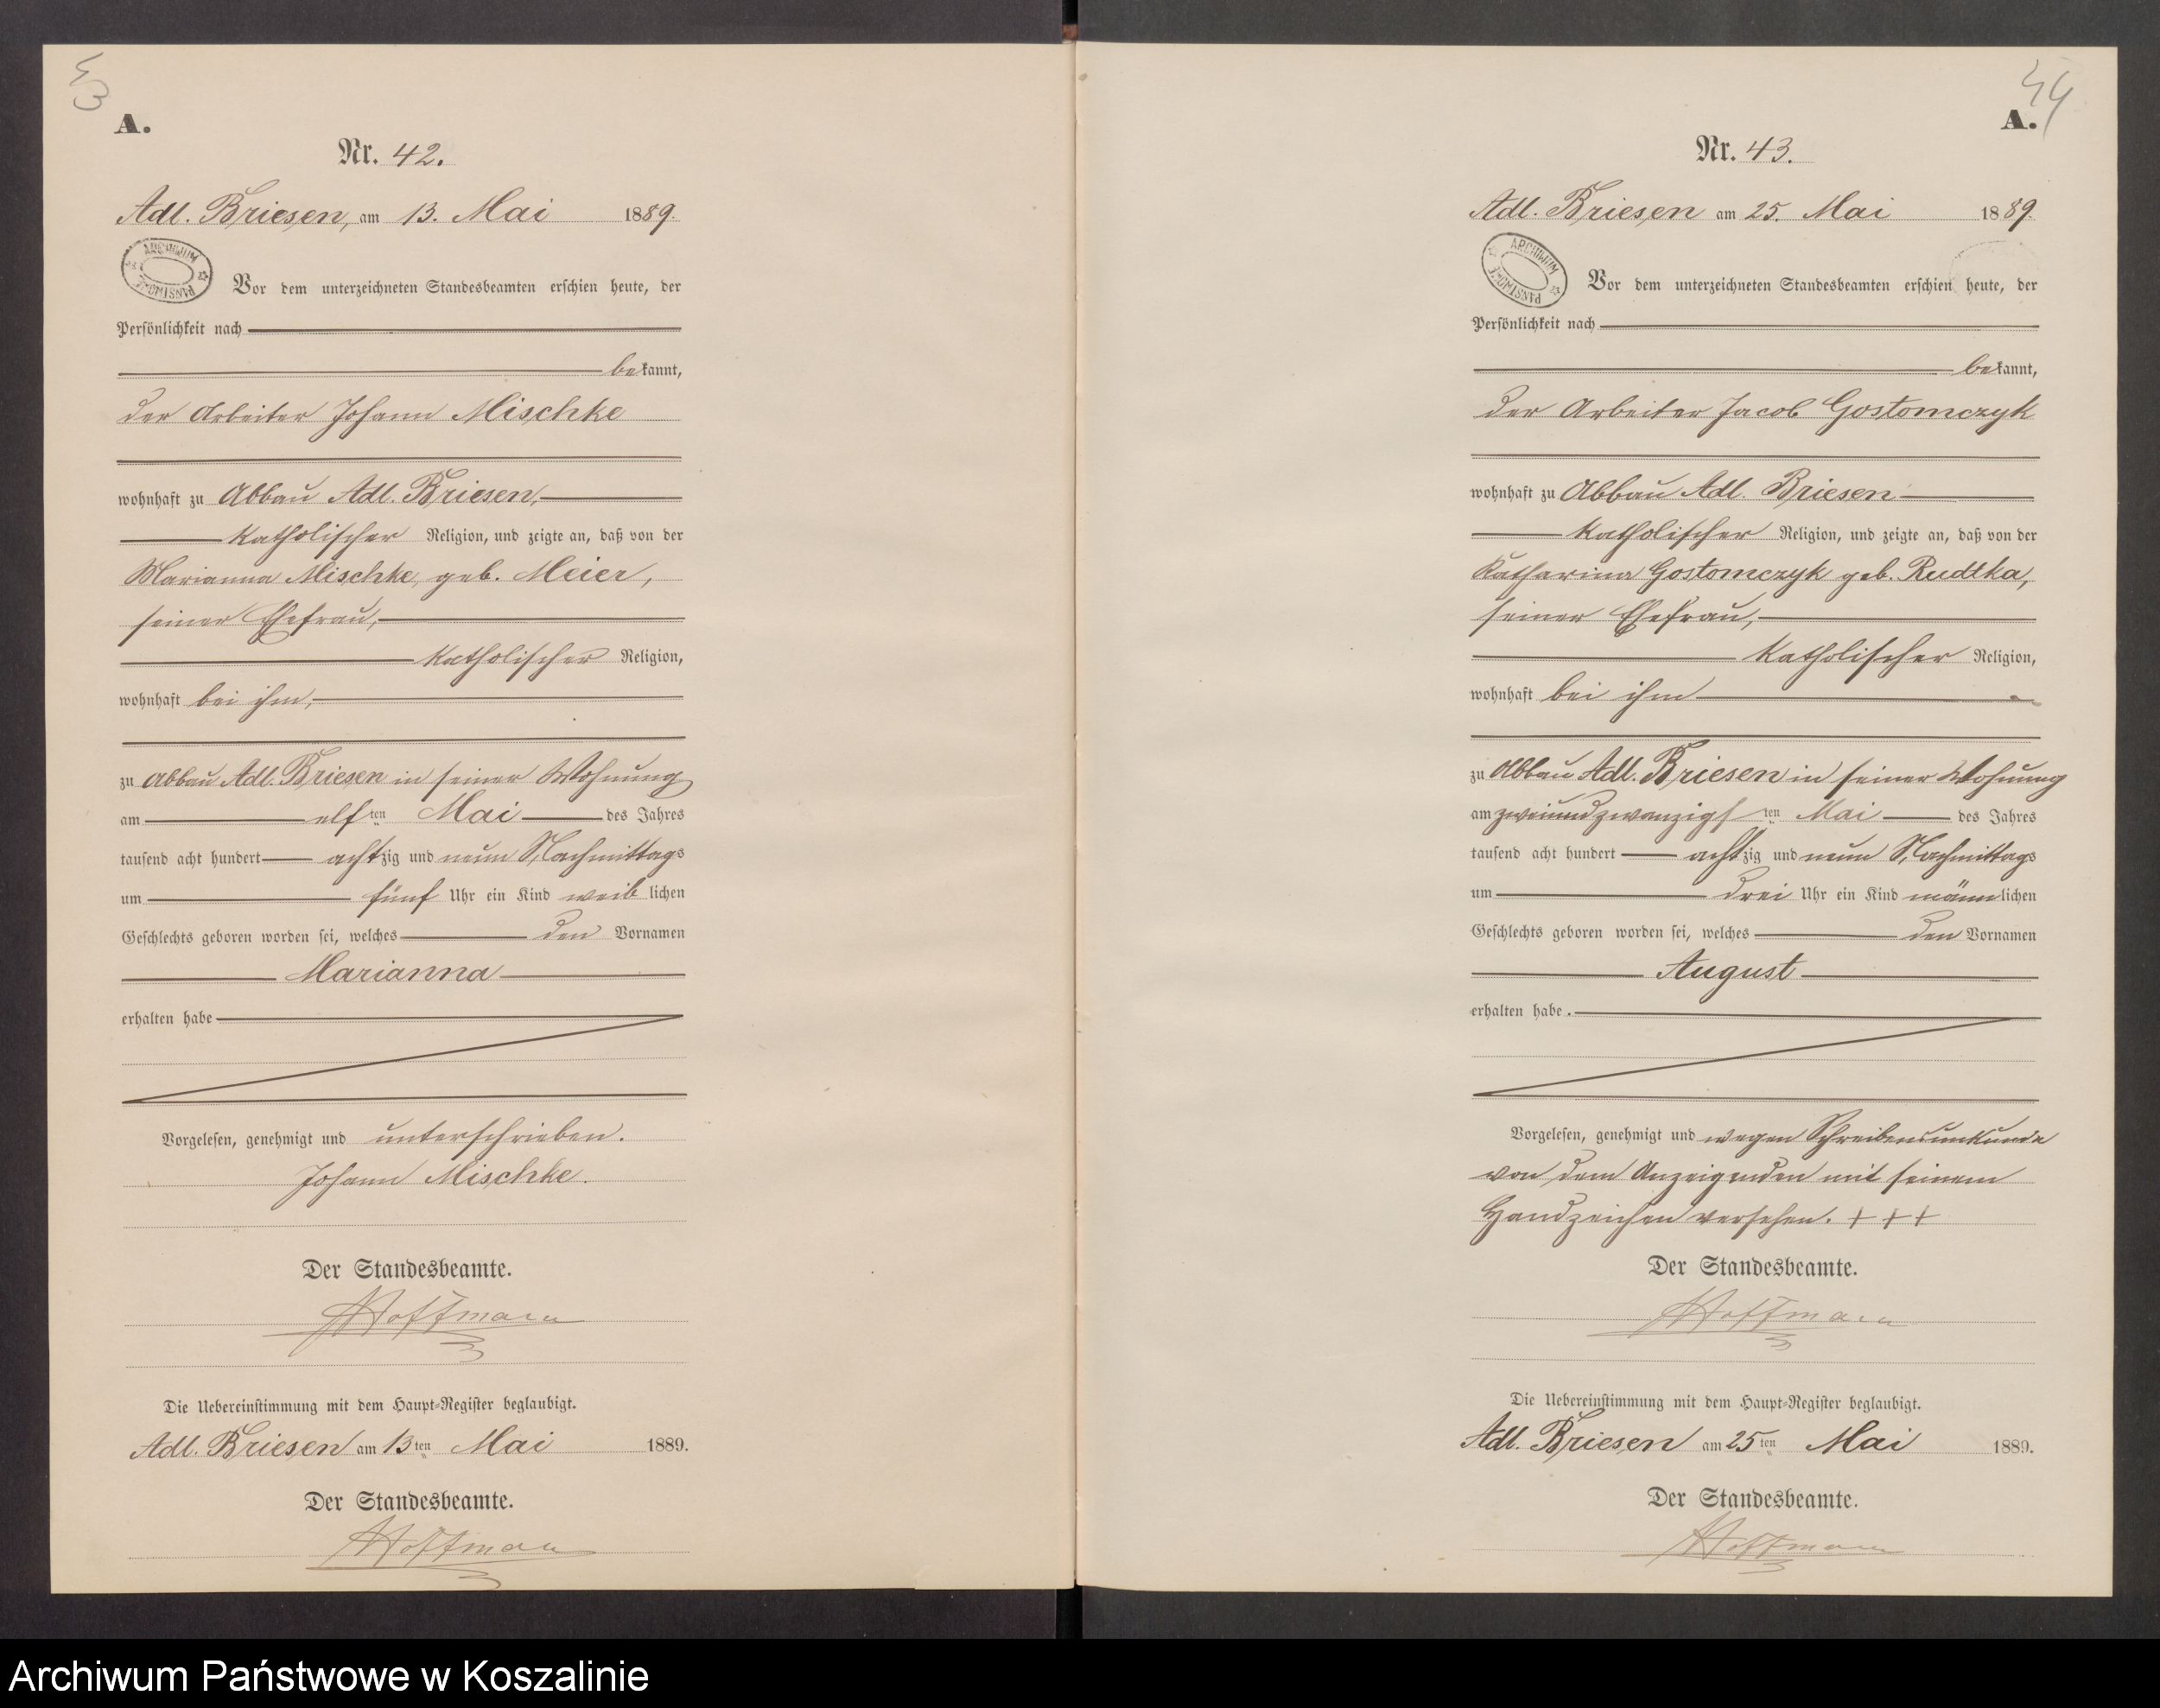 43
A.
Nr. 42.
Adl. Briesen, am 13. Mai 1889.
ARCHIWUM PAŃSTWOWE
Vor dem unterzeichneten Standesbeamten erschien heute, der
Persönlichkeit nach
bekannt,
der Arbeiter Johann Mischke
wohnhaft zu Abbau Adl. Briesen,
katholischer Religion, und zeigte an, daß von der
Marianna Mischke, geb. Meier,
seiner Ehefrau,
katholischer Religion,
wohnhaft bei ihm,
zu Abbau Adl. Briesen in seiner Wohnung
am elften Mai des Jahres
tausend acht hundert achtzig und neun Nachmittags
um fünf Uhr ein Kind weiblichen
Geschlechts geboren worden sei, welches den Vornamen
Marianna
erhalten habe
Vorgelesen, genehmigt und unterschrieben.
Johann Mischke.
Der Standesbeamte.
Hoffmann
Die Uebereinstimmung mit dem Haupt-Register beglaubigt.
Adl. Briesen am 13ten Mai 1889.
Der Standesbeamte.
Hoffmann
44
A.
Nr. 43.
Adl. Briesen am 25. Mai 1889.
ARCHIWUM PAŃSTWOWE
Vor dem unterzeichneten Standesbeamten erschien heute, der
Persönlichkeit nach
bekannt,
der Arbeiter Jacob Gostomczyk
wohnhaft zu Abbau Adl. Briesen
katholischer Religion, und zeigte an, daß von der
Katharina Gostomczyk geb. Rudtka,
seiner Ehefrau,
katholischer Religion,
wohnhaft bei ihm
zu Abbau Adl. Briesen in seiner Wohnung
am zweiundzwanzigsten Mai des Jahres
tausend acht hundert achtzig und neun Nachmittags
um drei Uhr ein Kind männlichen
Geschlechts geboren worden sei, welches den Vornamen
August
erhalten habe.
Vorgelesen, genehmigt und wegen Schreibensunkunde
von dem Anzeigenden mit seinem
Handzeichen versehen. + + +
Der Standesbeamte.
Hoffmann
Die Uebereinstimmung mit dem Haupt-Register beglaubigt.
Adl. Briesen am 25ten Mai 1889.
Der Standesbeamte.
Hoffmann
Archiwum Państwowe w Koszalinie